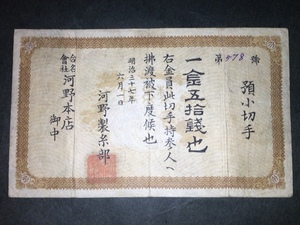 預小切手
第578號
一金五拾錢也
右金員此切手持參人へ
拂渡被下度候也
明治三十七年
六月一日
河野製糸部
合名會社
河野本店
御中